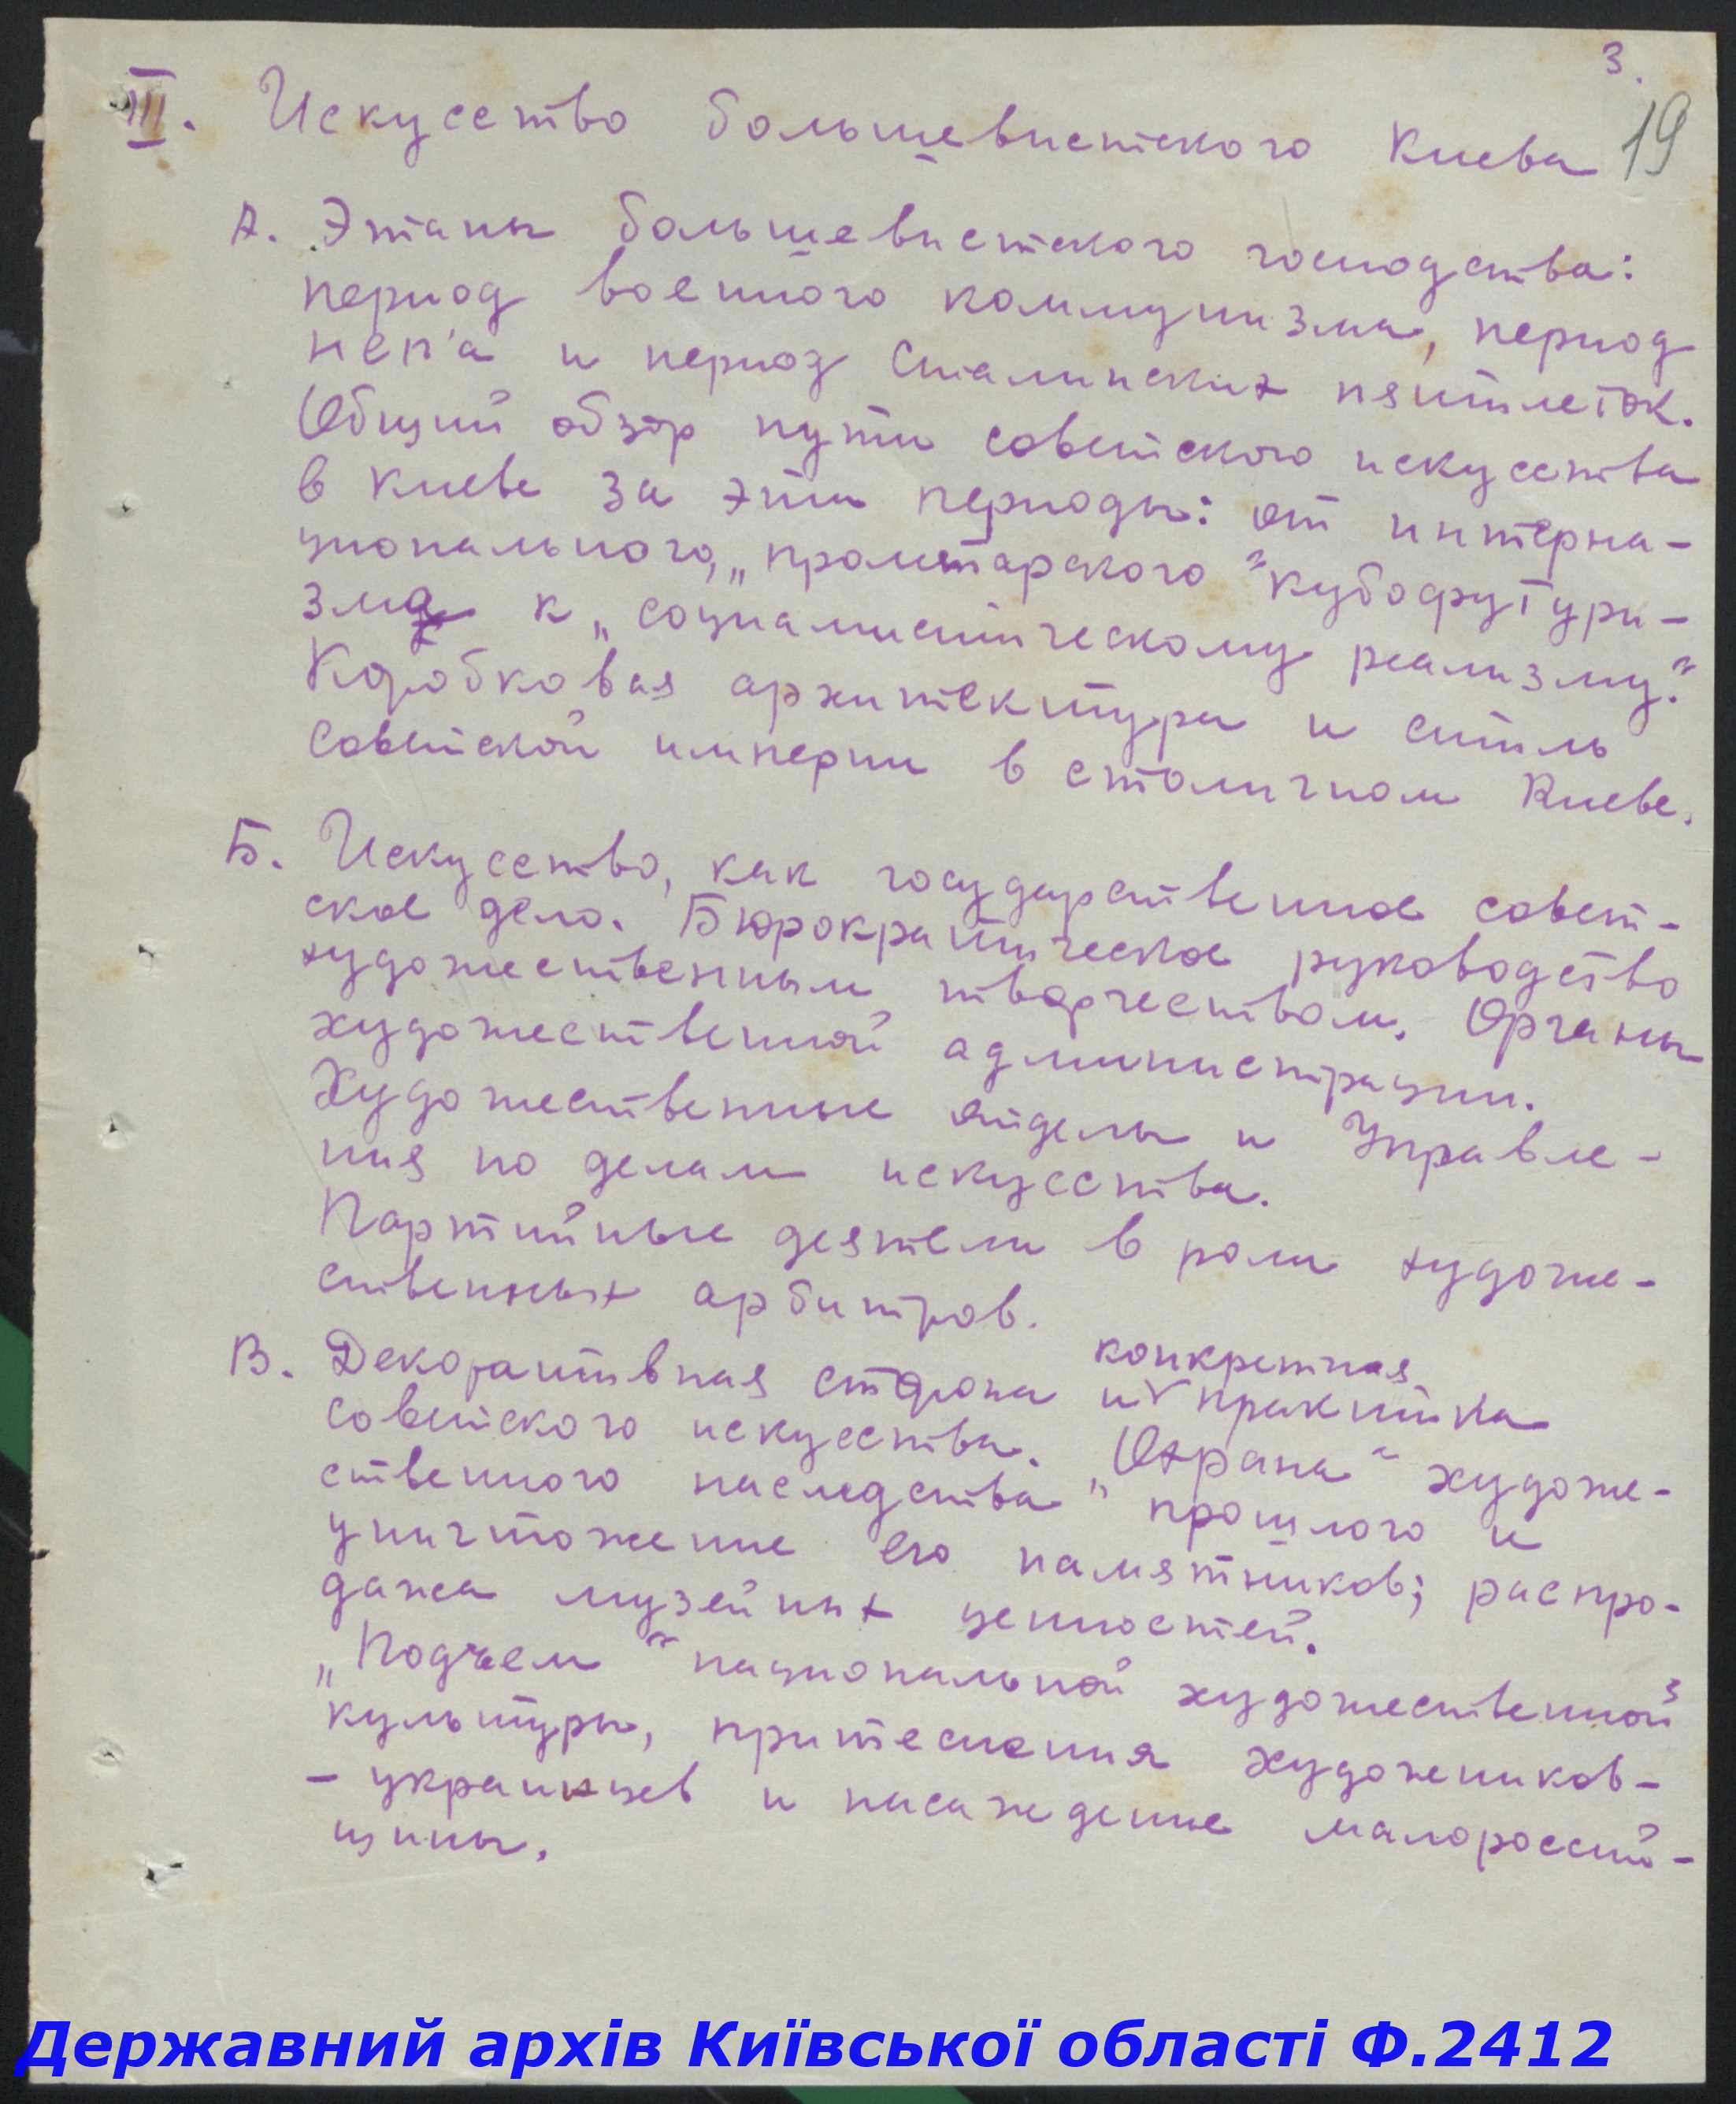 3.
19
III. Искусство большевистского Киева
А. Этапы большевистского господства:
период военного коммунизма, период
неп'а и период Сталинских пятилеток.
Общий обзор пути советского искусства
в Киеве за эти периоды: от интерна-
ционального, „пролетарского" кубофутури-
зма к „социалистическому реализму".
Коробковая архитектура и стиль
Советской империи в столичном Киеве.
Б. Искусство, как государственное совет-
ское дело. Бюрократическое руководство
художественным творчеством. Органы
художественной администрации.
Художественные отделы и Управле-
ния по делам искусства.
Партийные деятели в роли художе-
ственных арбитров.
В. Декоративная сторона и конкретная практика
советского искусства. „Охрана" художе-
ственного наследства" прошлого и
уничтожение его памятников; распро-
дажа музейных ценностей.
„Подъем" национальной художественной
культуры, притеснения художников-
- украинцев и насаждение малороссий-
щины.
Державний архів Київської області Ф.2412